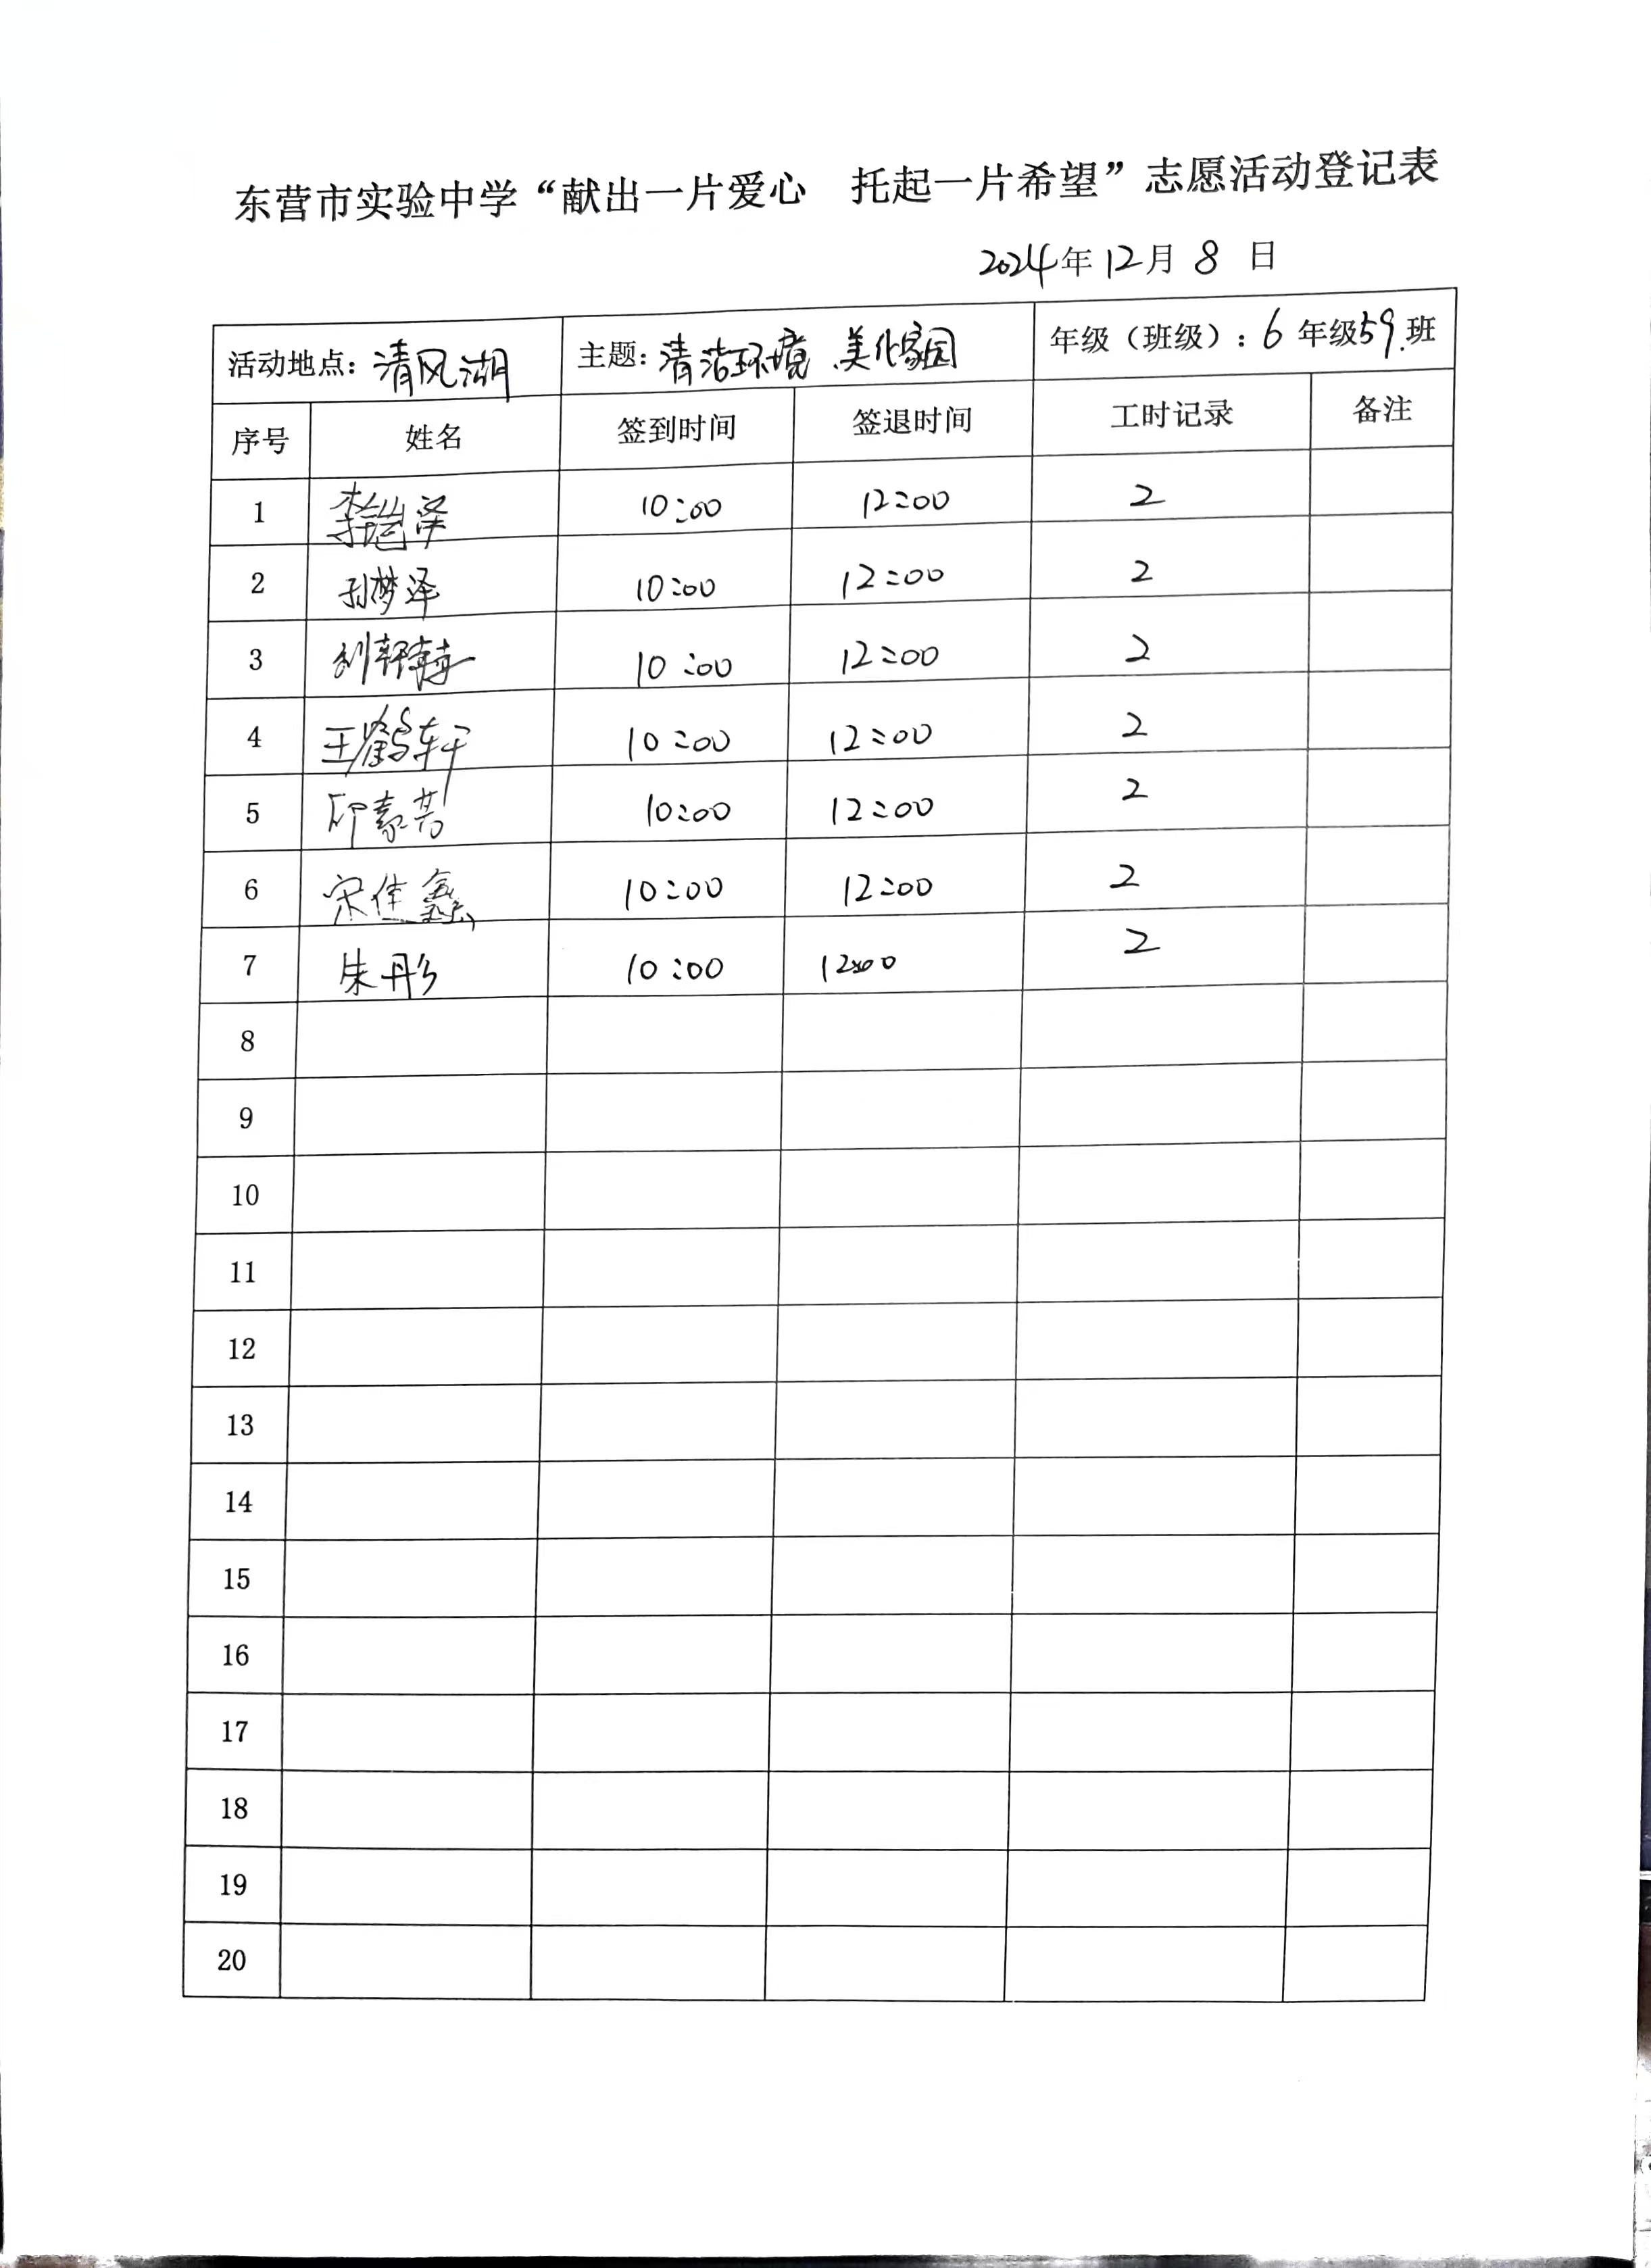 东营市实验中学“献出一片爱心 托起一片希望”志愿活动登记表
2024年12月8日
活动地点：清风湖 主题：清洁环境 美化家园 年级（班级）：6年级59.班
序号 姓名 签到时间 签退时间 工时记录 备注
1 李岩泽 10:00 12:00 2
2 孙梦泽 10:00 12:00 2
3 刘轩 10:00 12:00 2
4 王鹤轩 10:00 12:00 2
5 10:00 12:00 2
6 宋佳鑫 10:00 12:00 2
7 朱彤 10:00 12:00 2
8
9
10
11
12
13
14
15
16
17
18
19
20